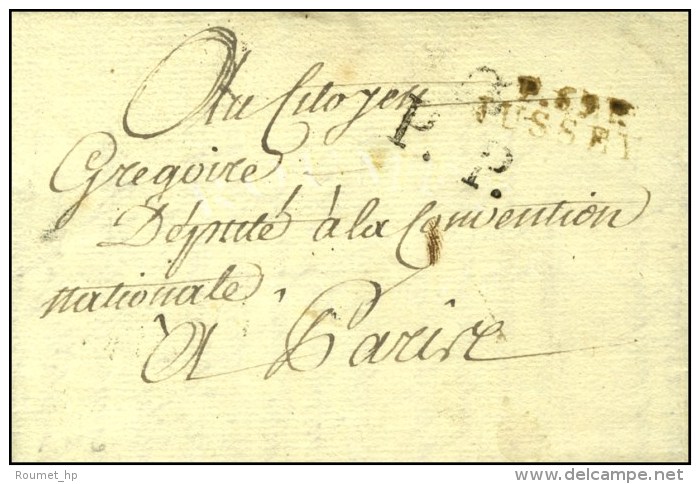 Au Citoyen
P. 69 P.
JUSSEY
P. P.
Gregoire
Député à la Convention
nationale,
A Paris
Roumet_hp
www.delcampe.net